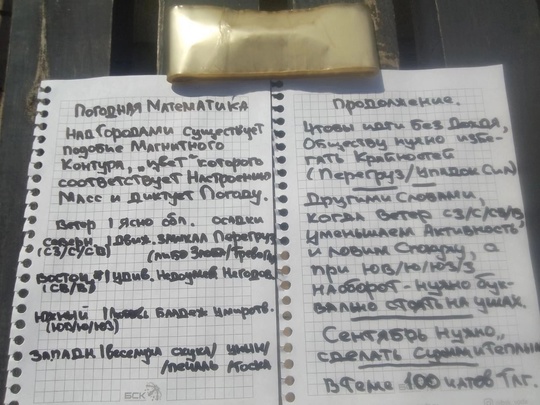 Погодная Математика
Над Городами существует
подобие Магнитного
Контура, "цвет" которого
соответствует Настроению
Масс и диктует Погоду.
Ветер | Ясно обл. осадки
Северн | Движ. Перегруз
(СЗ/С/СВ) (либо Злоба/Тревога)
Восточн | Удив. Недоумен Негодов
(СВ/В)
Южный | Блаженс Умиротв.
(ЮВ/Ю/ЮЗ)
Западн | Веселуха скука/ уныни/
/печаль тоска
БСК
Продолжение.
Чтобы идти без Дождя,
Обществу нужно избе-
гать Крайностей
(Перегруз/Упадок Сил)
Другими Словами,
когда Ветер СЗ/С/СВ/В
уменьшаем Активность,
и ловим а
при ЮВ/Ю/ЮЗ/З
наоборот - нужно бук-
вально стоять на ушах.
Сентябрь нужно
сделать Сухим и Теплым
В Теме 100 чатов Тлг.